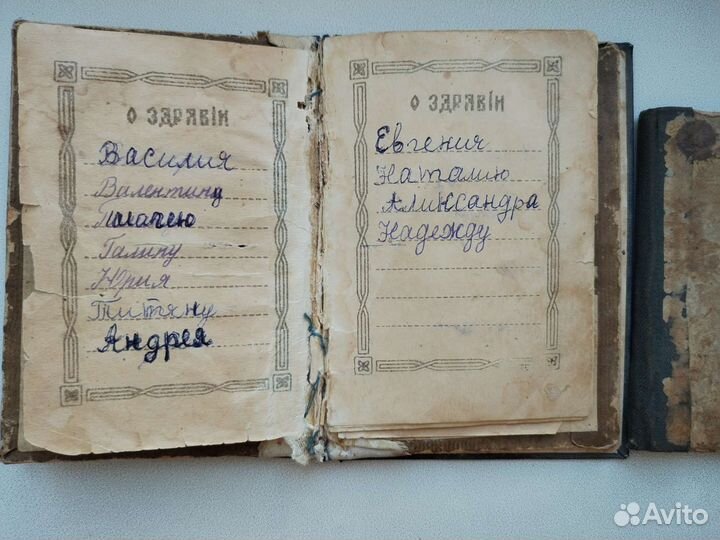 О ЗДРАВІИ
Василия
Валентину
Пелагею
Галину
Юрия
Титяну
Андрея
О ЗДРАВІИ
Евгения
Наталию
Аликсандра
Надежду
Avito